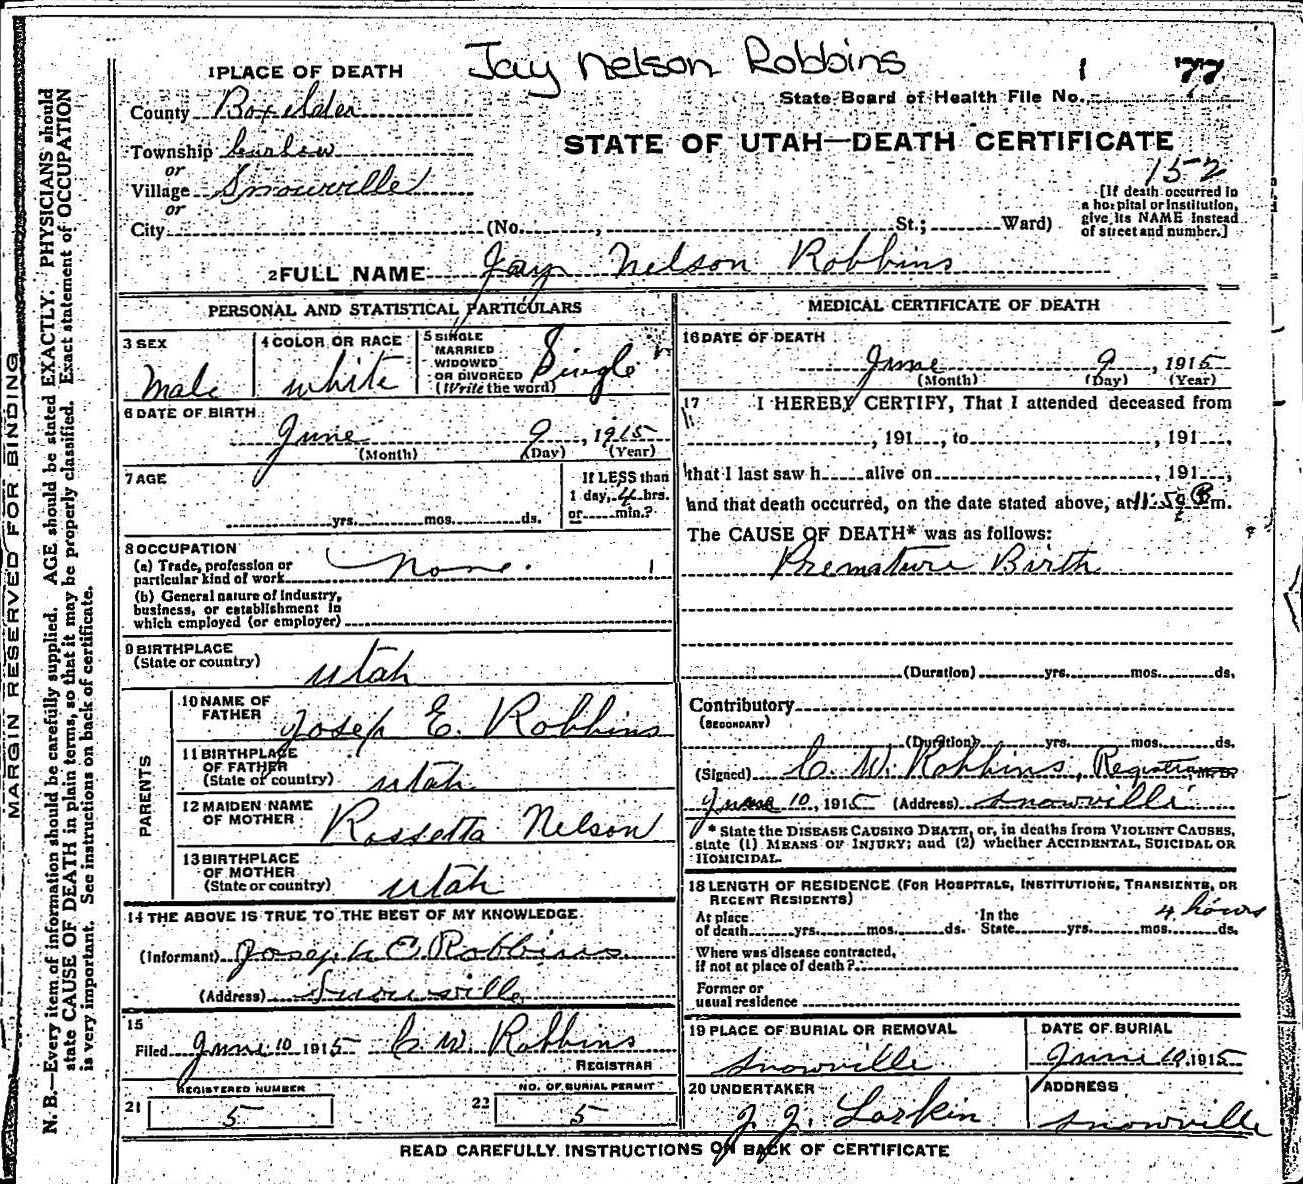 Jay Nelson Robbins
1 77
State Board of Health File No.
STATE OF UTAH—DEATH CERTIFICATE
152
[If death occurred in a hospital or institution, give its NAME instead of street and number.]
1 PLACE OF DEATH
County Boxelder
Township Curlew
or
Village Snowville
or
City (No. , St.; Ward)
2 FULL NAME Jay Nelson Robbins
PERSONAL AND STATISTICAL PARTICULARS
3 SEX
Male
4 COLOR OR RACE
white
5 SINGLE
MARRIED
WIDOWED
OR DIVORCED
(Write the word)
Single
6 DATE OF BIRTH
June 9, 1915
(Month) (Day) (Year)
7 AGE
yrs. mos. ds.
If LESS than
1 day, 4 hrs.
or min.?
8 OCCUPATION
(a) Trade, profession or
particular kind of work None.
(b) General nature of industry,
business, or establishment in
which employed (or employer)
9 BIRTHPLACE
(State or country)
Utah
PARENTS
10 NAME OF
FATHER
Josep E. Robbins
11 BIRTHPLACE
OF FATHER
(State or country) Utah
12 MAIDEN NAME
OF MOTHER
Rossetta Nelson
13 BIRTHPLACE
OF MOTHER
(State or country) Utah
14 THE ABOVE IS TRUE TO THE BEST OF MY KNOWLEDGE.
(Informant) Joseph E. Robbins
(Address) Snowville
15
Filed June 10 1915 C. W. Robbins
REGISTRAR
REGISTERED NUMBER
21 5
NO. OF BURIAL PERMIT
22 5
MEDICAL CERTIFICATE OF DEATH
16 DATE OF DEATH
June 9, 1915
(Month) (Day) (Year)
17 I HEREBY CERTIFY, That I attended deceased from
, 191 , to , 191 ,
that I last saw h alive on , 191 ,
and that death occurred, on the date stated above, at 11:59 P m.
The CAUSE OF DEATH* was as follows:
Premature Birth
(Duration) yrs. mos. ds.
Contributory
(SECONDARY)
(Duration) yrs. mos. ds.
(Signed) C. W. Robbins, Registrar M.D.
June 10, 1915 (Address) Snowville
* State the DISEASE CAUSING DEATH, or, in deaths from VIOLENT CAUSES,
state (1) MEANS OF INJURY; and (2) whether ACCIDENTAL, SUICIDAL OR
HOMICIDAL.
18 LENGTH OF RESIDENCE (FOR HOSPITALS, INSTITUTIONS, TRANSIENTS, OR
RECENT RESIDENTS)
4 hours
At place
of death yrs. mos. ds.
In the
State yrs. mos. ds.
Where was disease contracted,
if not at place of death?
Former or
usual residence
19 PLACE OF BURIAL OR REMOVAL
Snowville
DATE OF BURIAL
June 10, 1915
20 UNDERTAKER
J. J. Larkin
ADDRESS
Snowville
READ CAREFULLY INSTRUCTIONS ON BACK OF CERTIFICATE
MARGIN RESERVED FOR BINDING
N. B.—Every item of information should be carefully supplied. AGE should be stated EXACTLY. PHYSICIANS should
state CAUSE OF DEATH in plain terms, so that it may be properly classified. Exact statement of OCCUPATION
is very important. See instructions on back of certificate.